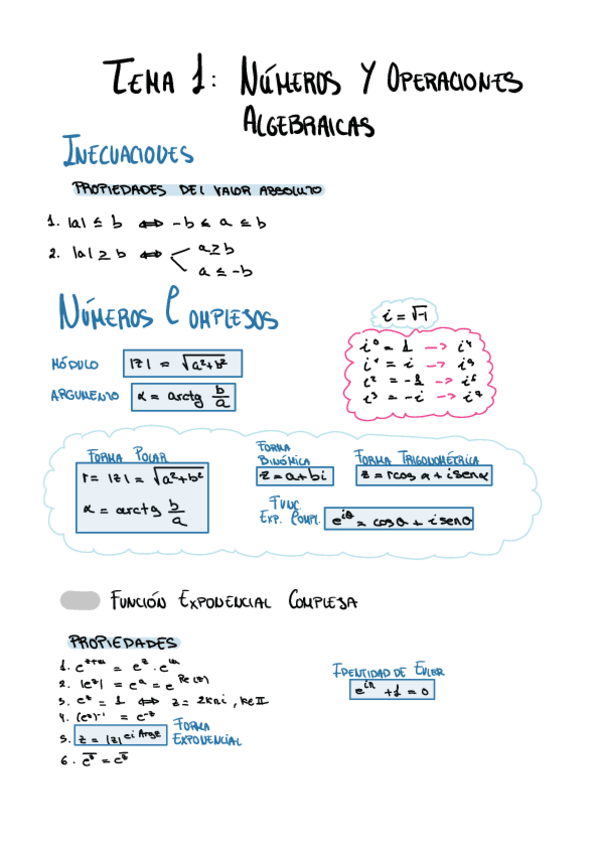 TEMA 1: NÚMEROS Y OPERACIONES
ALGEBRAICAS
INECUACIONES
PROPIEDADES DEL VALOR ABSOLUTO
1. |a| ≤ b ⇔ -b ≤ a ≤ b
2. |a| ≥ b ⇔ a ≥ b
a ≤ -b
NÚMEROS COMPLEJOS
i = √-1
i⁰ = 1 → i⁴
i¹ = i → i⁵
i² = -1 → i⁶
i³ = -i → i⁷
MÓDULO |z| = √a²+b²
ARGUMENTO α = arctg b/a
FORMA POLAR
r = |z| = √a²+b²
α = arctg b/a
FORMA
BINÓMICA
z = a+bi
FORMA TRIGONOMÉTRICA
z = rcos α + i senα
FUNC.
EXP. COMPL. e^iθ = cosθ + i senθ
FUNCIÓN EXPONENCIAL COMPLEJA
PROPIEDADES
1. e^z+w = e^z · e^w
2. |e^z| = e^a = e^Re(z)
3. e^z = 1 ⇔ z = 2kπi, k∈ℤ
4. (e^z)^-1 = e^-z
5. z = |z| e^i Arg z FORMA
EXPONENCIAL
6. e^z = e^z
IDENTIDAD DE EULER
e^iπ + 1 = 0